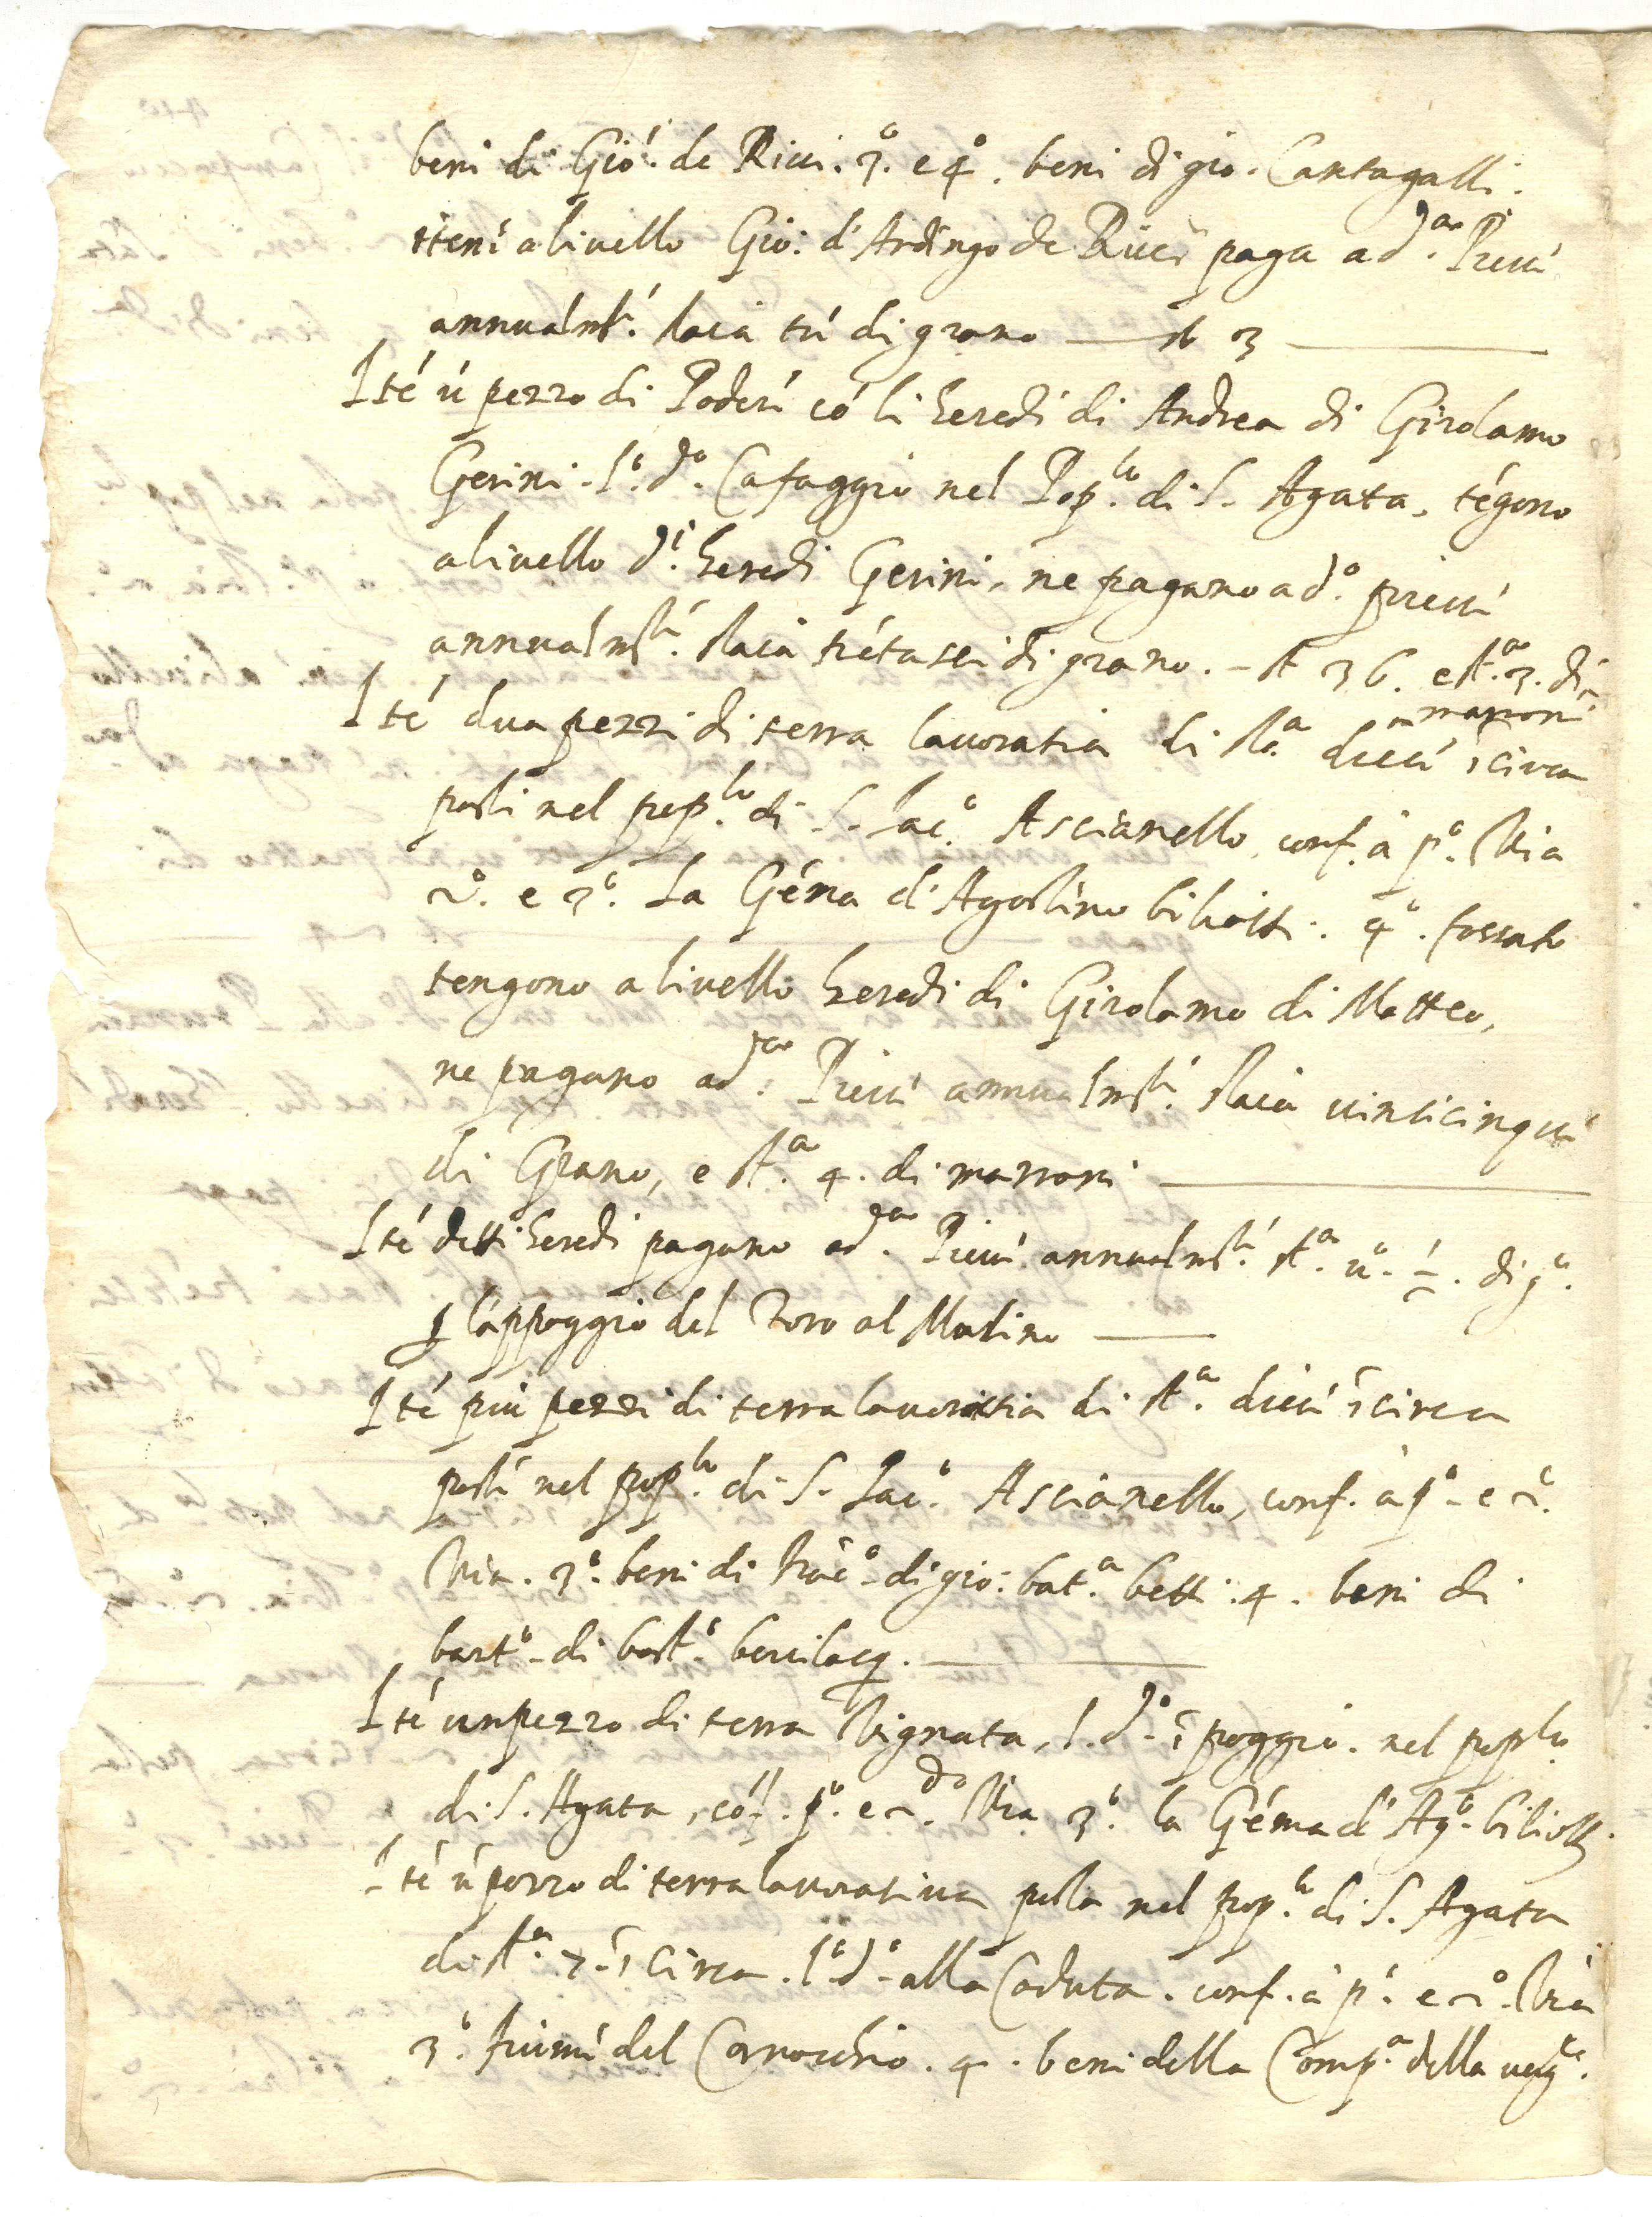 beni di Gio: de Ricci. 3º. e 4º. beni di gio. Cantagalli.
tiení a livello Gio: d'Ardingo de Ricci paga a dª. Pieví
annualmte. staia tré di grano — st 3 —
Ité ú pezzo di Poderi có li heredi di Andrea di Girolamo
Gerini. l.º dº. Cafaggio nel Pop.lo di S. Agata, tégono
a livello d.i heredi Gerini, ne pagano a dº. pieví
annualmte. staia trétasei di grano. — st 36. e stª. 3. di
marroni
Ité dua pezzi di terra lavoratia di stª. dieci í circa
posti nel pop.lo di S. Iacº. Ascianello, conf. à pº. Via
2º. e 3º. La Géma d'Agostino biliotti. 4º. fossato
tengono a livello heredi di Girolamo di Matteo,
ne pagano a dª. Pieví annualmte. staia vinticinque
di Grano, e stª. 4. di marroni —
Ité detti heredi pagano a dª. Pieví annualmte. stª. uº. ½. di gº.
p l'appoggio del Toro al Mulino —
Ité piu pezzi di terra lavoratia di stª. dieci í circa
posti nel pop.lo di S. Iacº. Ascianello, conf. à pº. e 2º.
Via. 3º. beni di fracº. di gio: batª. betti. 4. beni di
bartº. di bastº. bevilacq. —
Ité un pezzo di terra Vignata, l. dº. í poggio. nel poplo
di S. Agata, cóf. pº. e 2.do Via 3º. la Géma d'Agº. biliotti.
Ité ú pezzo di terra lavorativa posta nel pop.lo di S. Agata
di stª. 7. í circa. lº. dº. alla Caduta. conf. à pº. e 2º. Via
3º. fiumé del Cornocchio. 4. beni della Compª. della verg.e